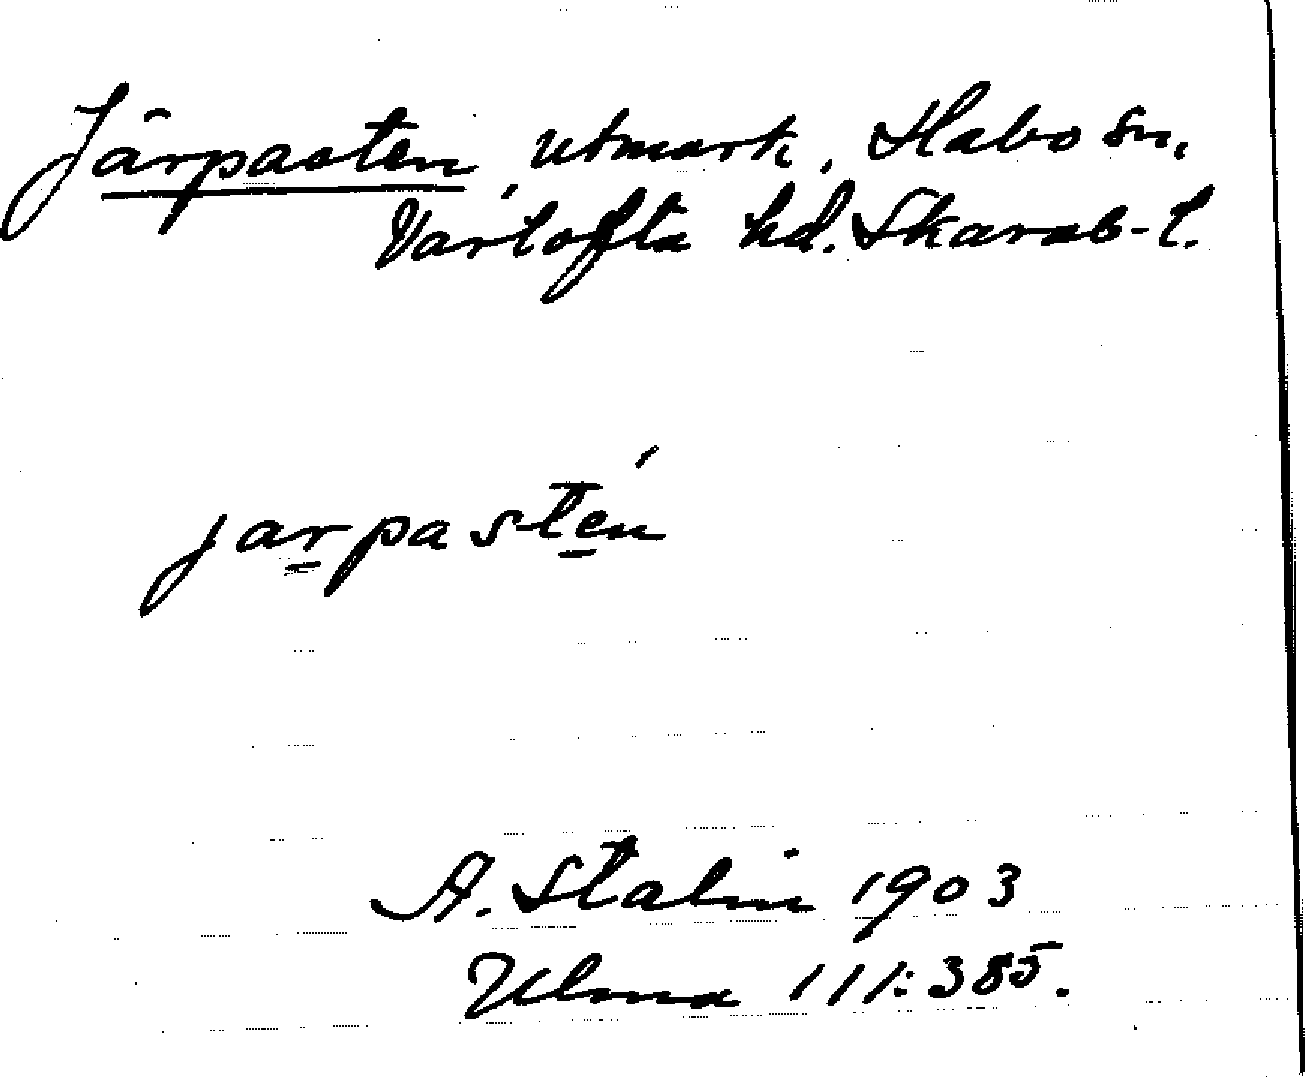 Järpasten, utmark, Habo sn,
Vartofta hd. Skarab-l.
jarpastén
A. Stalin 1903
Ulma 111:385.